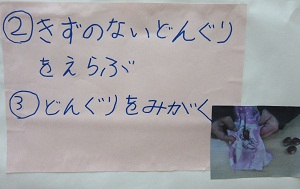 ②きずのないどんぐり
をえらぶ
③どんぐりをみがく